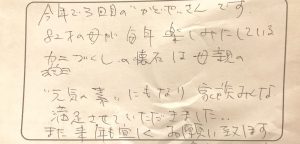 今年で3回目の"かに"さんです
82才の母が毎年楽しみにしている
カニづくしの懐石は母親の
"元気の素"にもなり家族みんな
満足させていただきました…
また来年も宜しくお願い致します